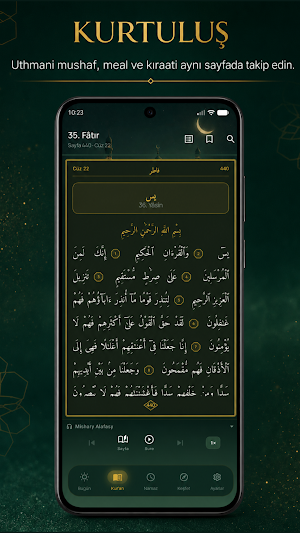 KURTULUŞ
Uthmani mushaf, meal ve kıraati aynı sayfada takip edin.
10:23
35. Fâtır
Sayfa 440 · Cüz 22
Cüz 22 فاطر 440
يس
36. Yâsîn
بِسْمِ اللَّهِ الرَّحْمَٰنِ الرَّحِيمِ
يسٓ ١ وَالْقُرْءَانِ الْحَكِيمِ ٢ إِنَّكَ لَمِنَ
الْمُرْسَلِينَ ٣ عَلَىٰ صِرَٰطٍ مُّسْتَقِيمٍ ٤ تَنزِيلَ
الْعَزِيزِ الرَّحِيمِ ٥ لِتُنذِرَ قَوْمًا مَّا أُنذِرَ ءَابَاؤُهُمْ فَهُمْ
غَٰفِلُونَ ٦ لَقَدْ حَقَّ الْقَوْلُ عَلَىٰ أَكْثَرِهِمْ فَهُمْ لَا
يُؤْمِنُونَ ٧ إِنَّا جَعَلْنَا فِىٓ أَعْنَٰقِهِمْ أَغْلَٰلًا فَهِىَ إِلَى
الْأَذْقَانِ فَهُم مُّقْمَحُونَ ٨ وَجَعَلْنَا مِنۢ بَيْنِ أَيْدِيهِمْ
سَدًّا وَمِنْ خَلْفِهِمْ سَدًّا فَأَغْشَيْنَٰهُمْ فَهُمْ لَا يُبْصِرُونَ
440
Mishary Alafasy
Sayfa Sure 1×
Bugün Kur'an Namaz Keşfet Ayarlar